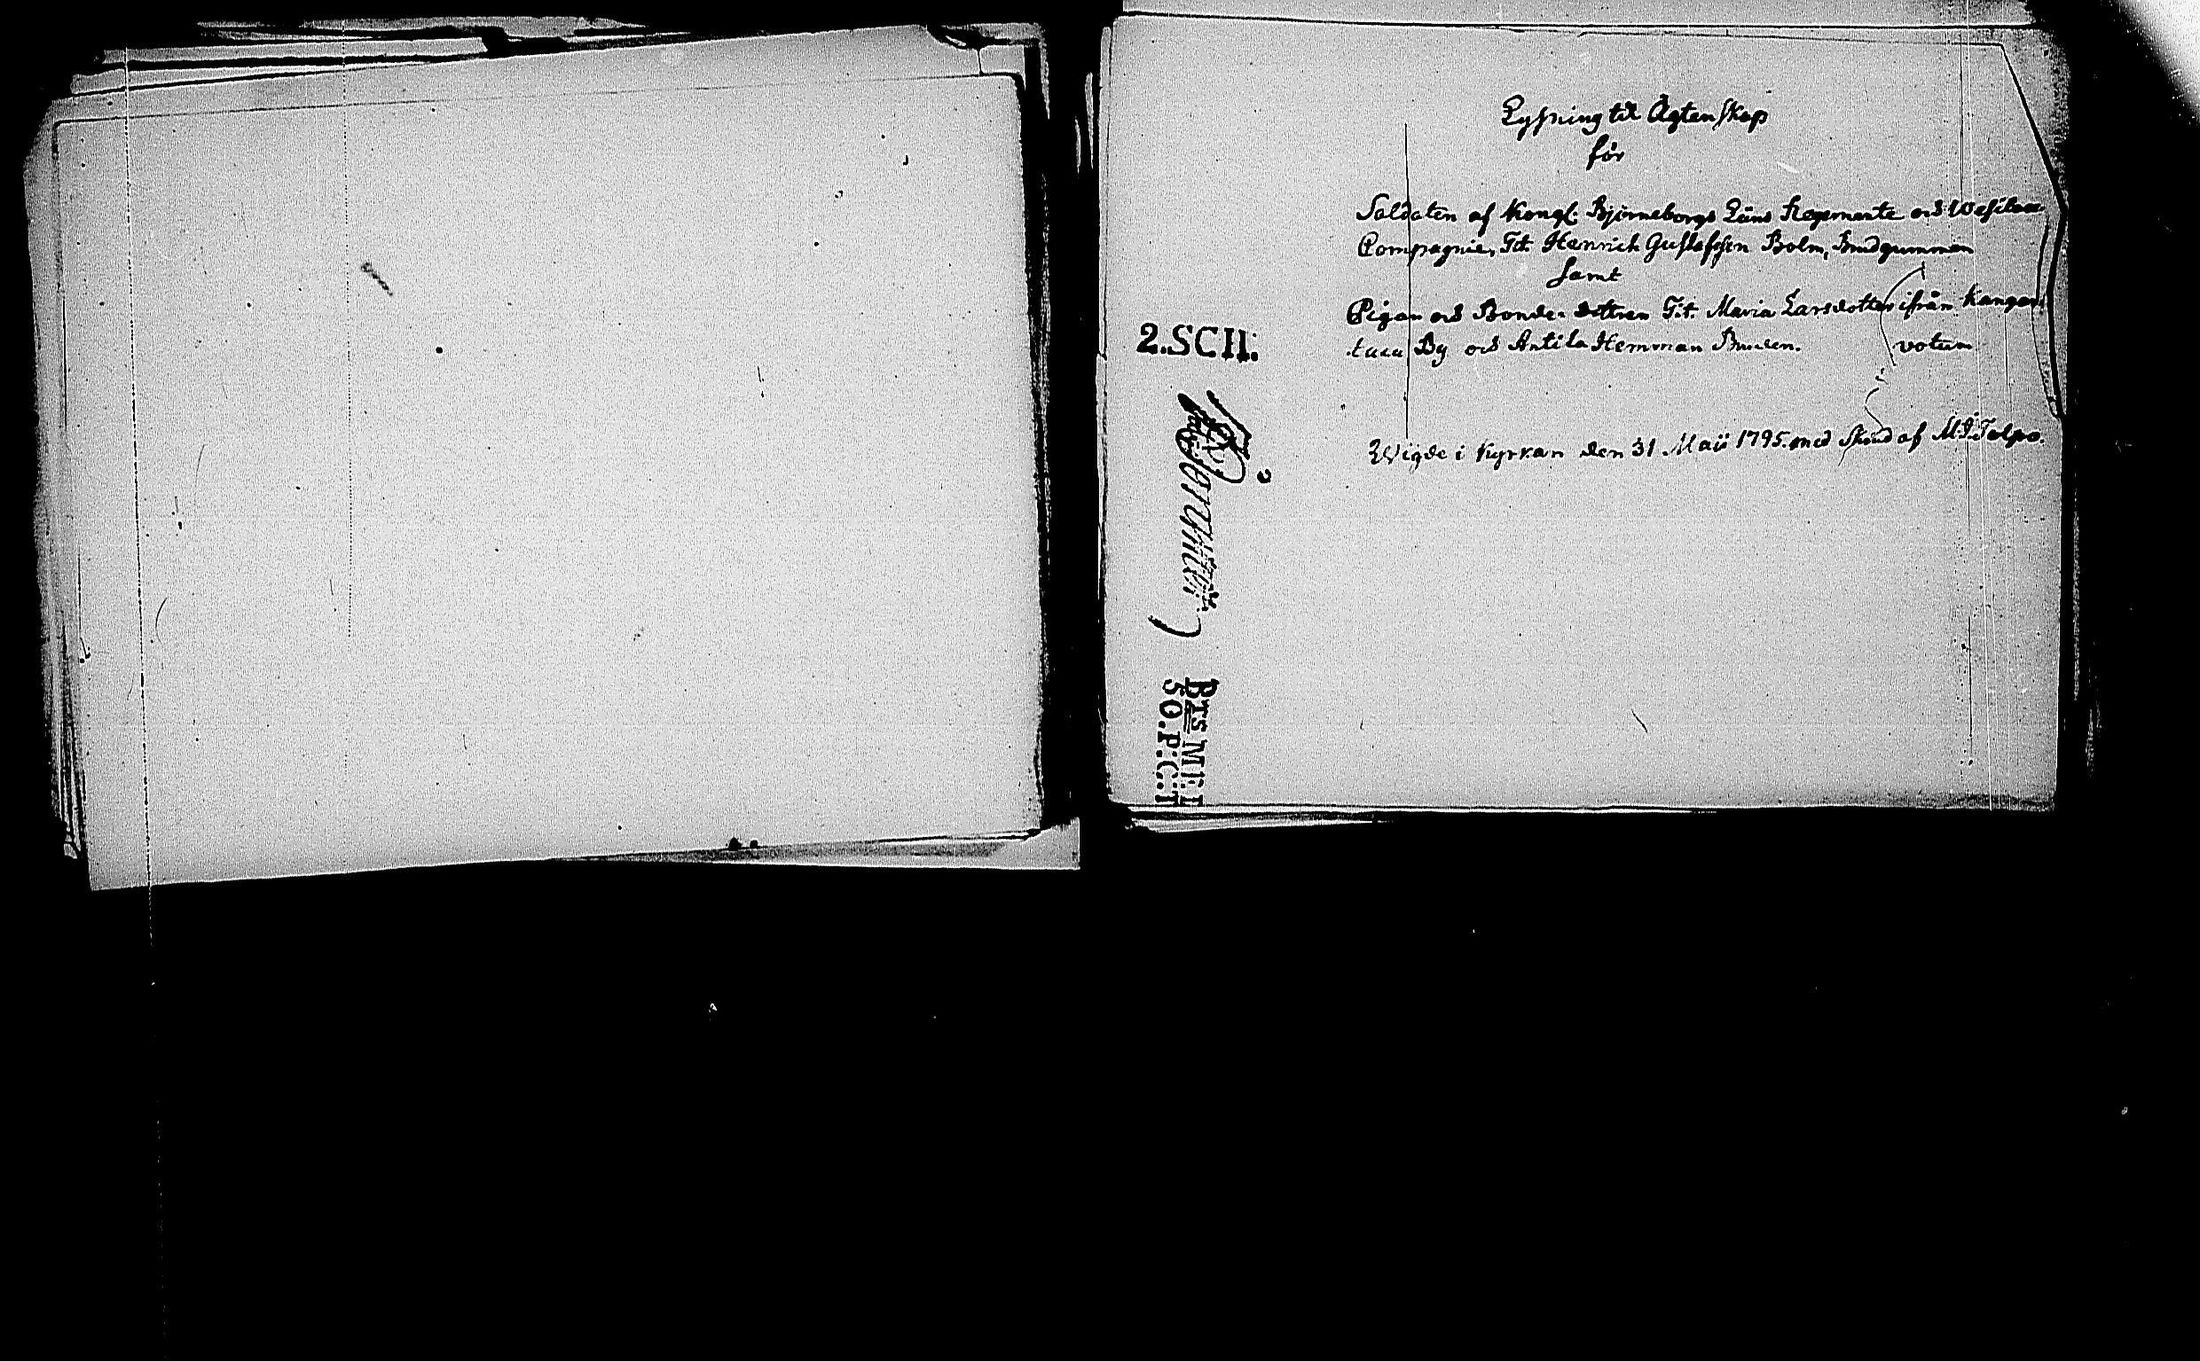 Lysning till Ägtenskap
för
Soldaten af Kongl. Björneborgs Läns Regemente och Wesilax
Compagnie, Tit. Henrich Gustafsson Bolm, Brudgummen
samt
Pigan och Bonde-dottren Tit. Maria Larsdotter ifrån Kangas
taca By och Antila Hemman Bruden.
votum
Wigde i Kyrkan den 31 Maii 1795 med af M. J. Tolpo.
2.SCII:
BTS M:I
50.P:C:I